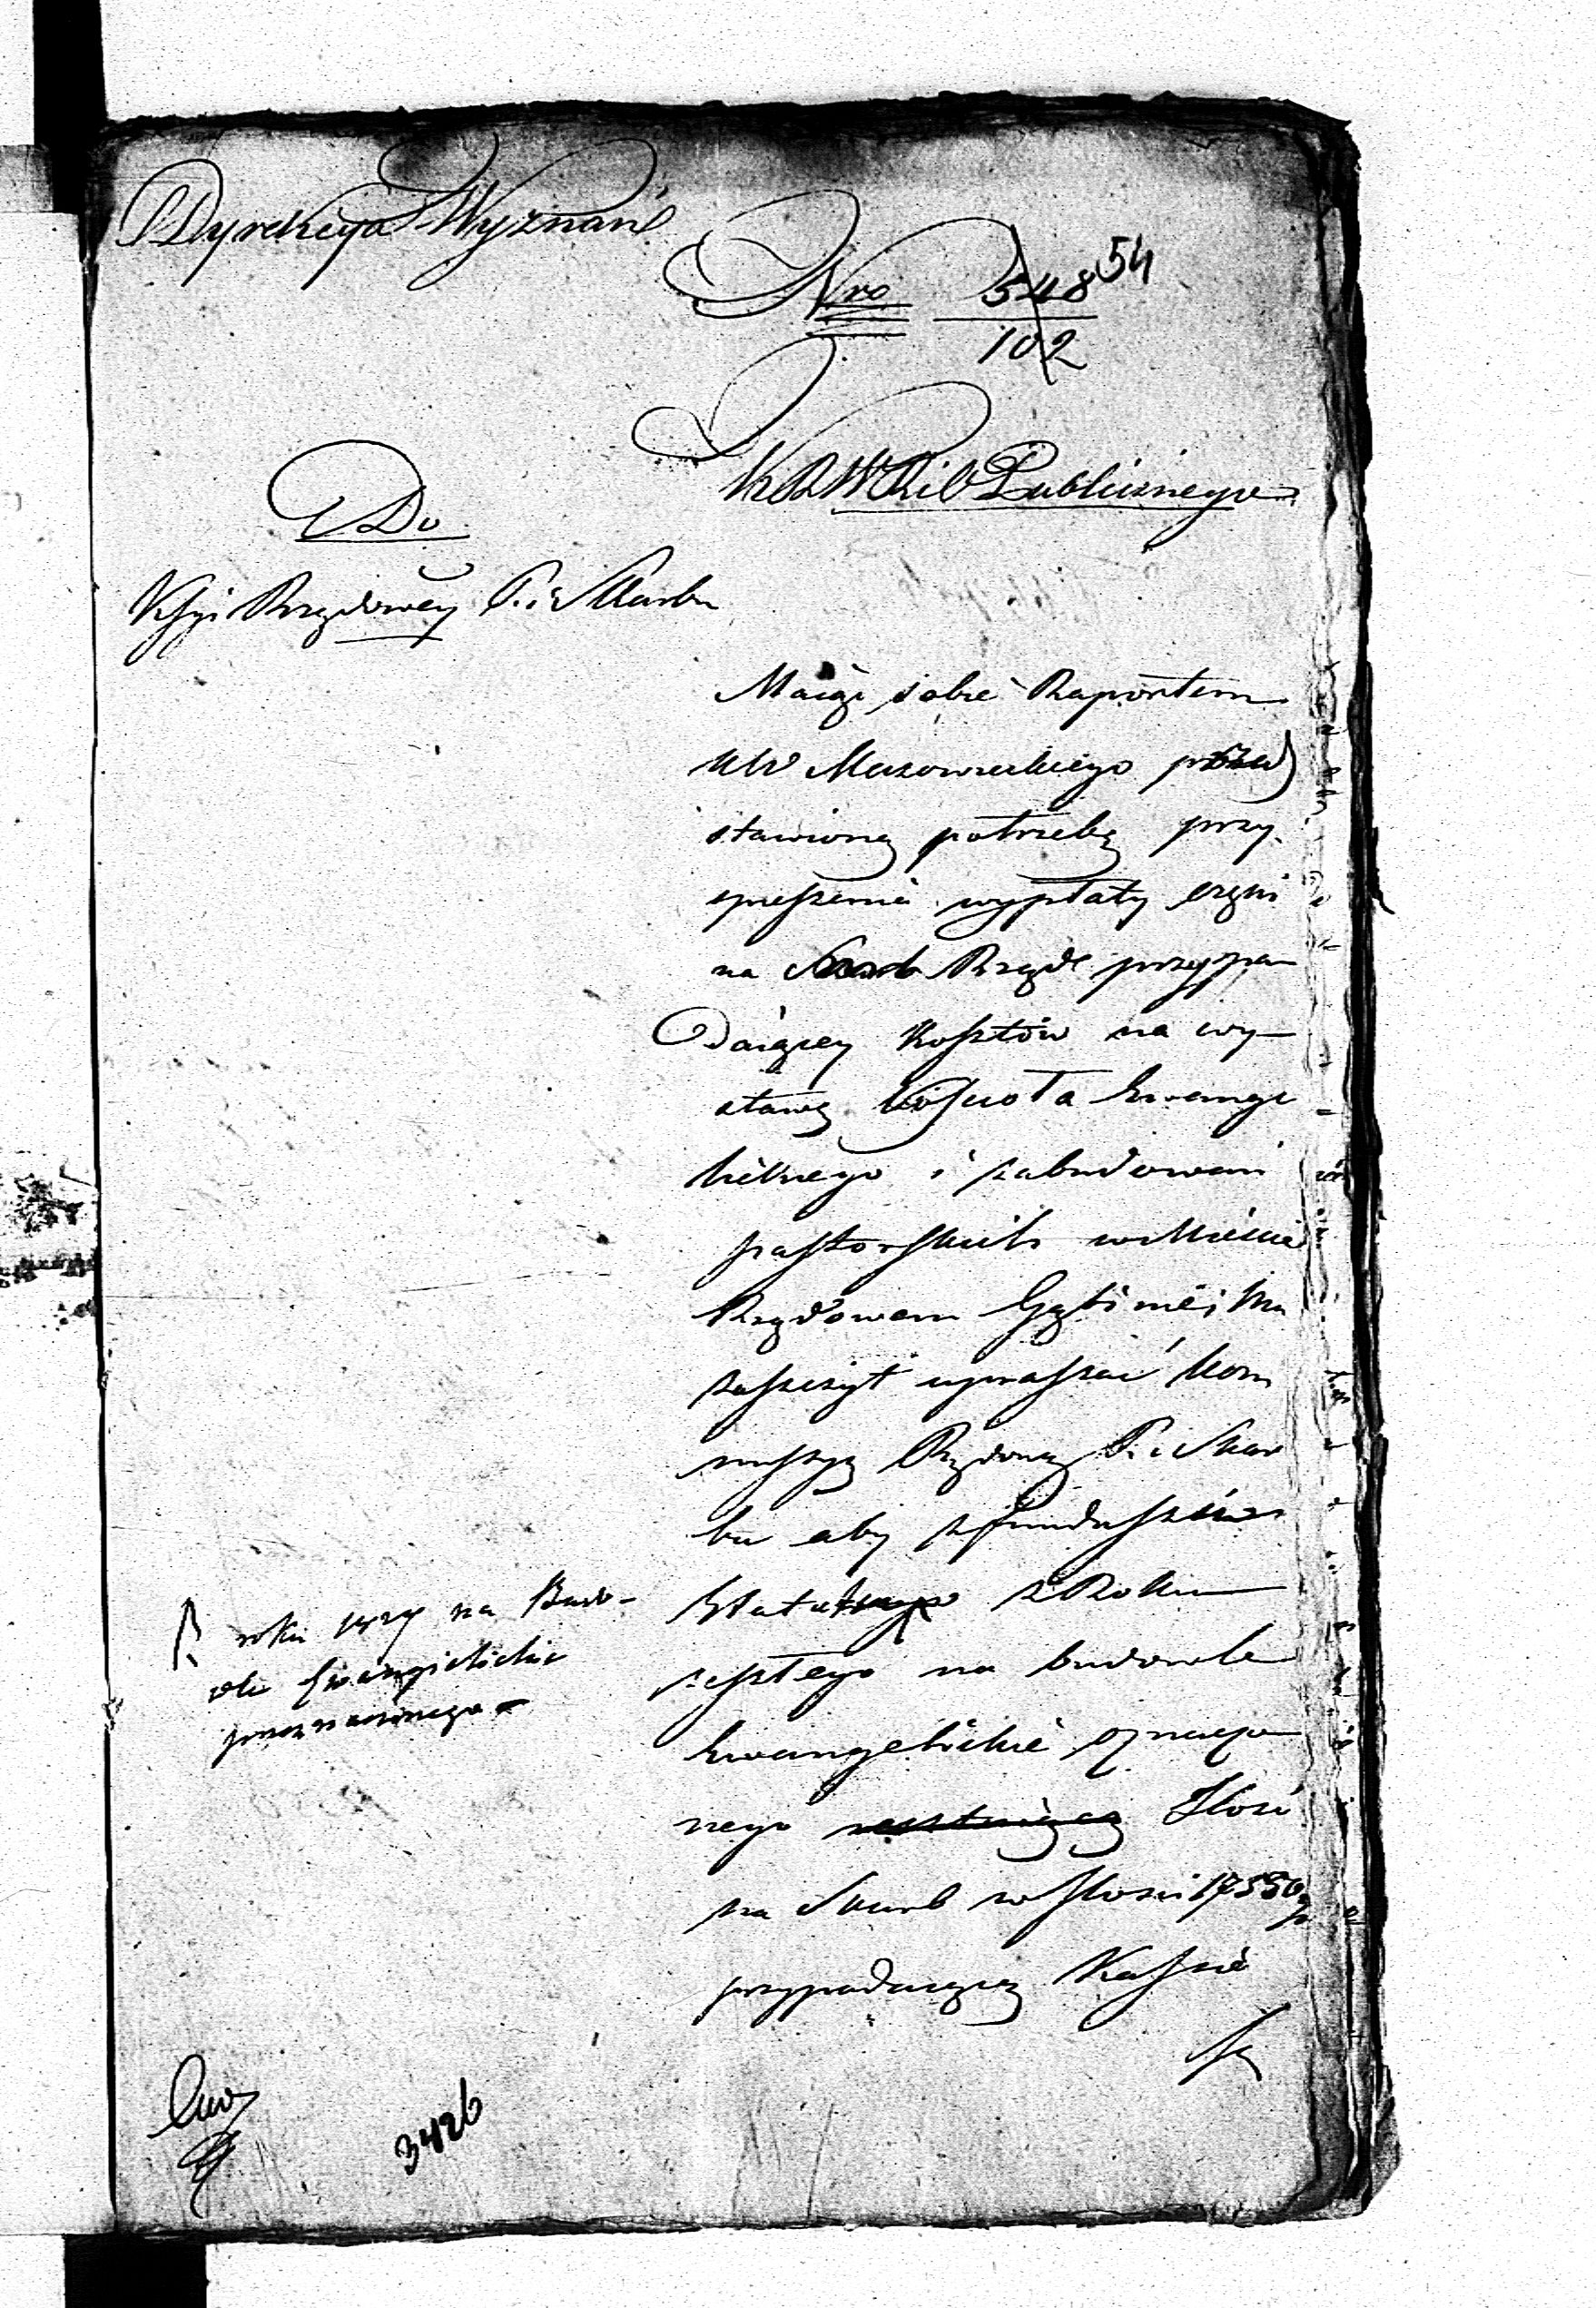 Dyrekcya Wyznań
Nro 548 54
102
K R W R i O Publicznego
Do
Kssyi Rządowey P. i Skarbu
Maiąc sobie Raportem
KW Mazowieckiego przed
stawioną potrzebę przy
spieszenia wypłaty części
na Skarb Rządu przypa
daiącey kosztów na wy
stawę kościoła Ewange
lickiego i zabudowań
pastorskich w Mieście
Rządowem Gąbinie, ma
zaszczyt upraszać Kom
missyą Rządową P. i Skar
bu aby z funduszów
Etatu z Roku
zeszłego na budowle
Ewangelickie
nego Ilość
na Skarb w Ilości 17550
przypadaiącą Kassie
roku na Budo-
wle Ewangielickie
przeznaczonego
3426